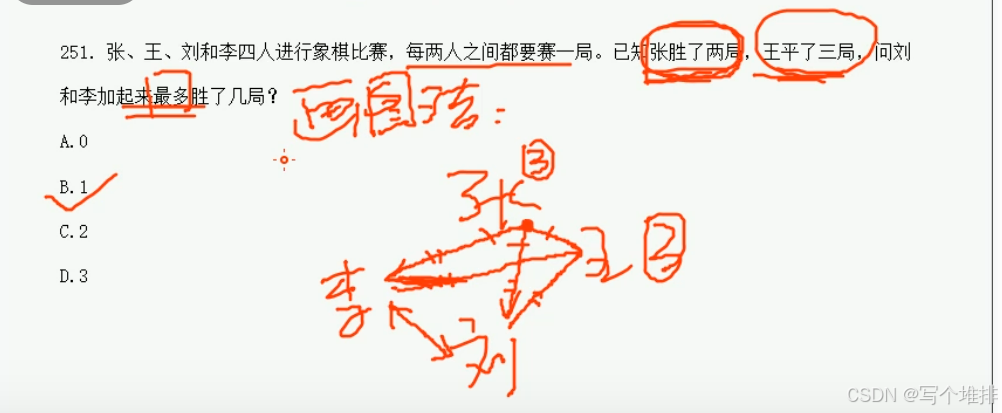 251. 张、王、刘和李四人进行象棋比赛，每两人之间都要赛一局。已知张胜了两局，王平了三局，问刘
和李加起来最多胜了几局？
画图法：
A.0
③
B.1
张
C.2
王 2
李
D.3
刘
CSDN @写个堆排